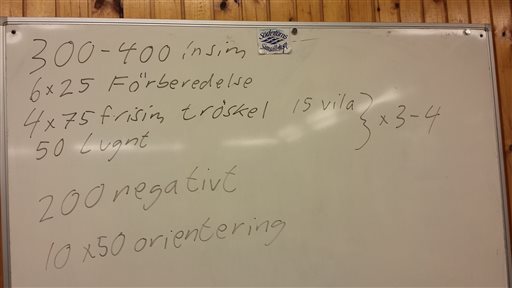 300-400 insim
6x25 Förberedelse
4x75 frisim tröskel 15 vila } x 3-4
50 lugnt
200 negativt
10 x50 orientering